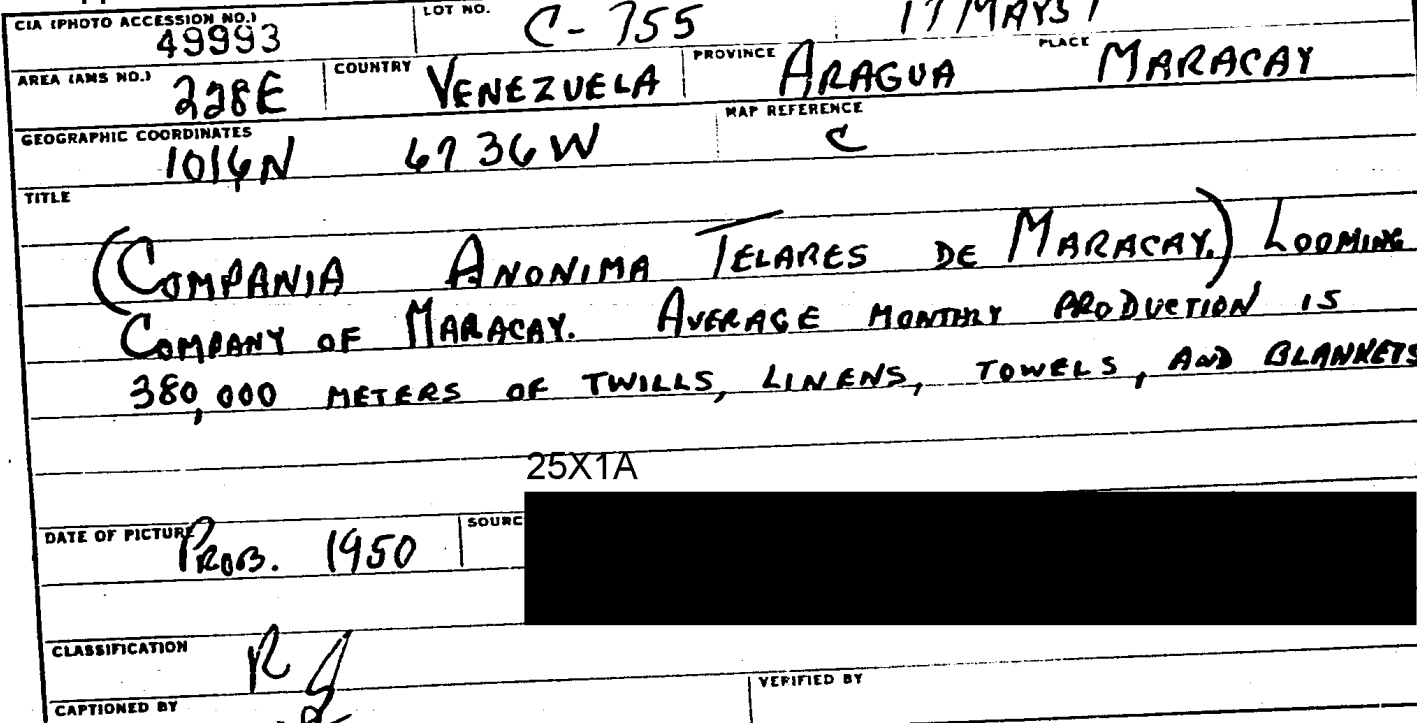 CIA (PHOTO ACCESSION NO.) 49993 LOT NO. C-755 17 MAY 51
AREA (AMS NO.) 228E COUNTRY VENEZUELA PROVINCE ARAGUA PLACE MARACAY
GEOGRAPHIC COORDINATES 1016N 6736W MAP REFERENCE C
TITLE
(COMPANIA ANONIMA TELARES DE MARACAY.) LOOMING
COMPANY OF MARACAY. AVERAGE MONTHLY PRODUCTION IS
380,000 METERS OF TWILLS, LINENS, TOWELS, AND BLANKETS
25X1A
DATE OF PICTURE PROB. 1950 SOURC
CLASSIFICATION R
CAPTIONED BY VERIFIED BY